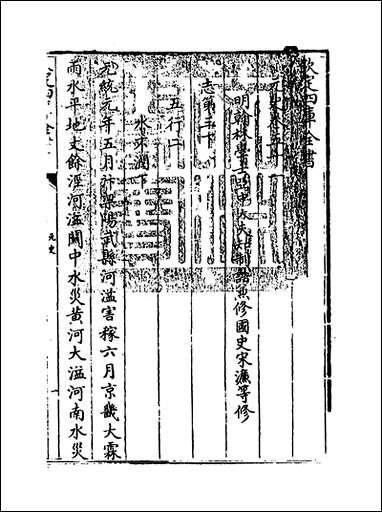 欽定四庫全書
元史卷五十一
明翰林學士亞中大夫知制誥兼修國史宋濂等修
志第三下
五行二
水不潤下
元統元年五月汴梁陽武縣河溢害稼六月京畿大霖
雨水平地丈餘涇河溢關中水災黄河大溢河南水災
元史